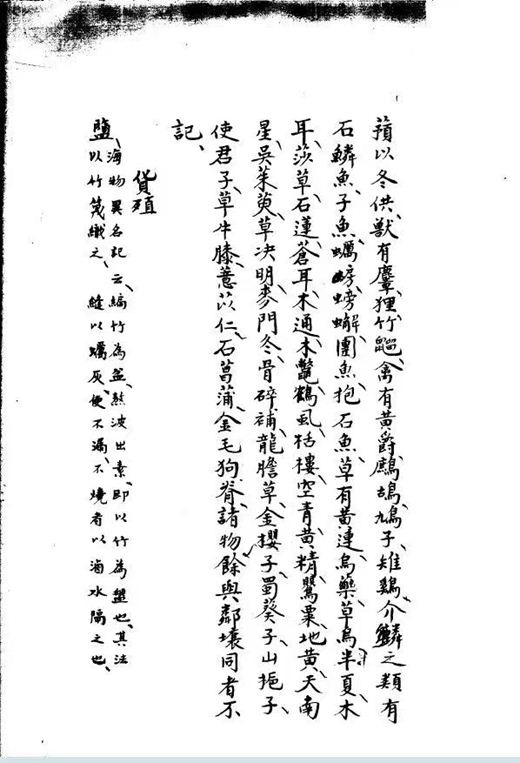 蘋以冬供、獸有麞、狸、竹䶉、禽有黃爵、鷓鴣、鳩子、雉鷄、介鱗之類有
石鱗魚、子魚、蠣、螃蟹、團魚、抱石魚、草有黃連、烏藥、草烏、半夏、木
耳、莎草、石蓮、蒼耳、木通、木鼈、鶴虱、栝樓、空青、黃精、鶯粟、地黃、天南
星、吳茱萸、草決明、麥門冬、骨碎補、龍膽草、金櫻子、蜀葵子、山梔子、
使君子、草牛膝、薏苡仁、石菖蒲、金毛狗脊、諸物餘與鄰壤同者不
記、
貨殖
鹽、海物異名記云、編竹為盆、熬波出素、即以竹為盤也、其法
以竹篾織之、縫以蠣灰、便不漏、不燒者以滷水隔之也、